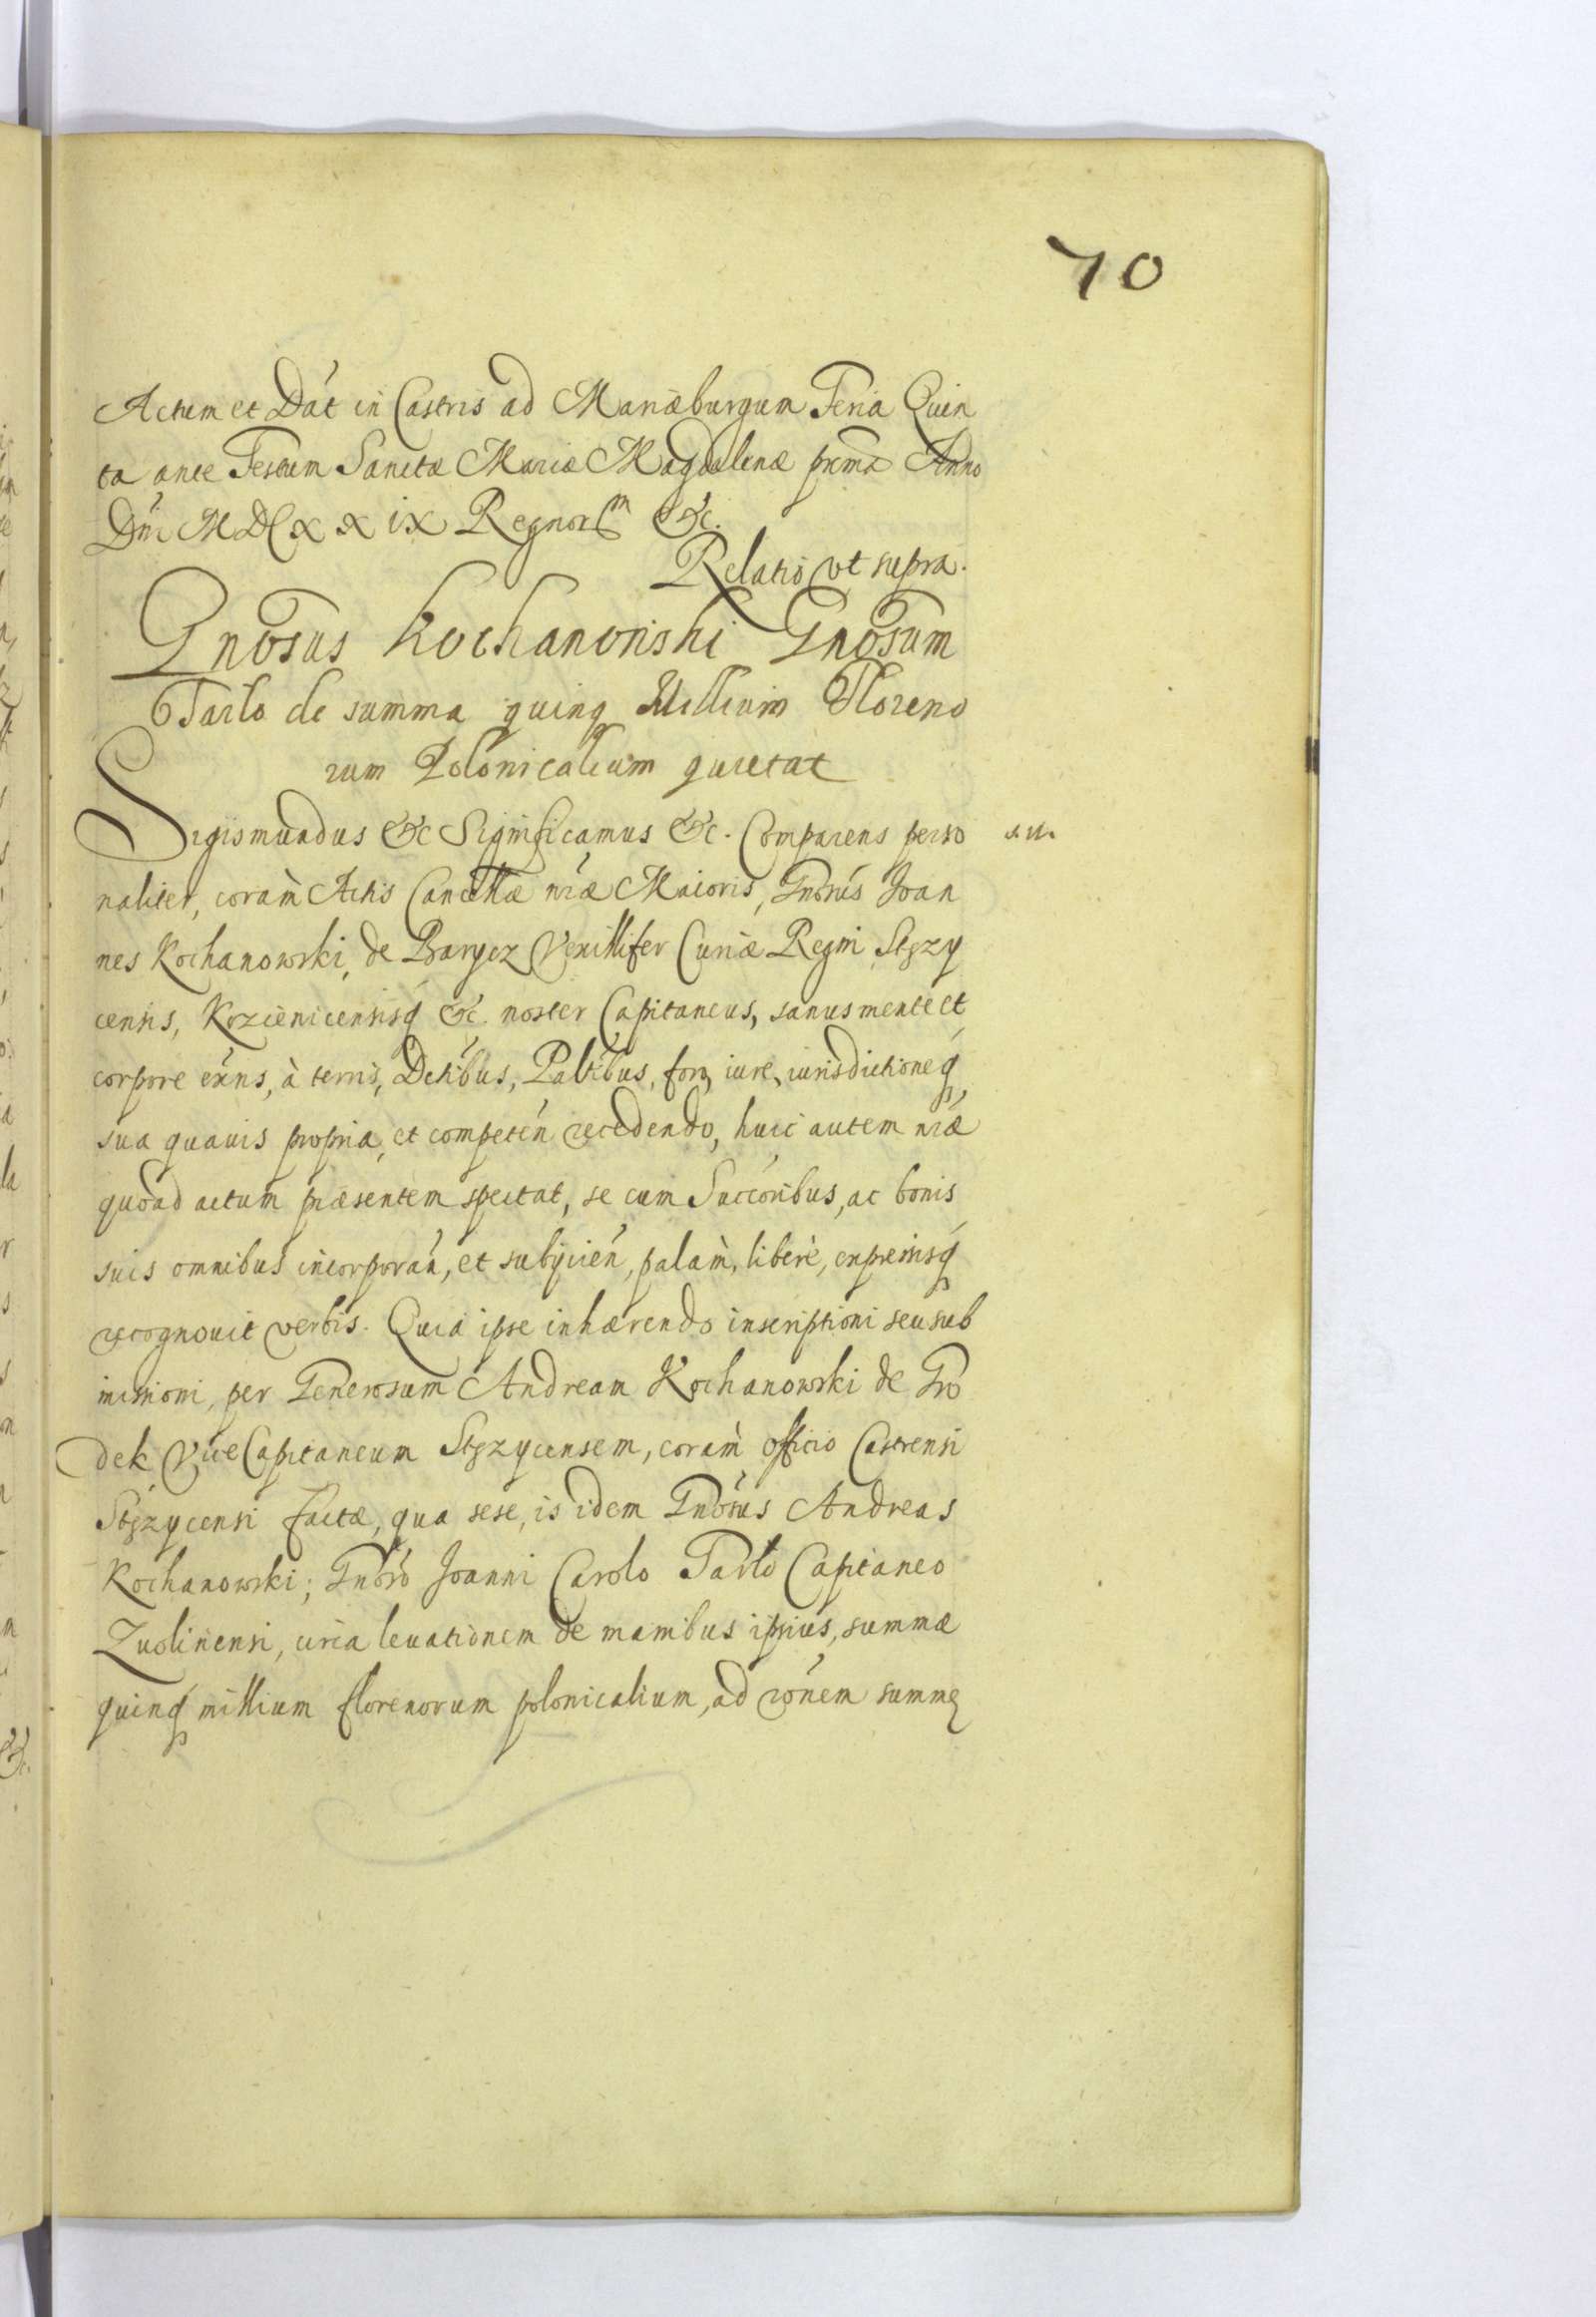 70
Actum et Dat́ in Castris ad Mariæburgum Feria Quin
ta ante Festum Sanctæ Mariæ Magdalenæ prima Anno
Dńi MDCXXIX Regnorͫ &c.
Relatio vt supra.
Gnosus Kochanowski Gnosum
Tarlo de summa quinq Millium Floreno
rum Polonicalium quietat
Sigismundus &c Significamus &c. Comparens perso
naliter, coram̀ Actis Cancellæ nræ Maioris, Gnosús Joan
nes Kochanowski, de Barycz Vexillifer Curiæ Regni Stęzy
censis, Kozienicensisq́ &c. noster Capitaneus, sanus mente et
corpore exńs, à terris, Detibús, Paltibús, foro, iure, iurisdictioneq́
sua quauis propria, et competeń recedendo, huic autem nræ
quoad actum præsentem spectat, se cum Succoribús, ac bonis
suis omnibus incorporań, et subijcień, palam̀, liberè, expressisq́
recognouit verbis. Quia ipse inhærendo inscriptioni seu sub
missioni, per Generosum Andream Kochanowski de Gro
dek ViceCapitaneum Stęzycensem, coram̀ officio Castrensi
Stęzycensi factæ, qua sese, is idem Gnosús Andreas
Kochanowski; Gnosó Joanni Carolo Tarło Capitaneo
Zwolinensi, circa leuationem de manibus ipsius, summæ
quinq́ millium florenorum polonicalium, ad rońem summę